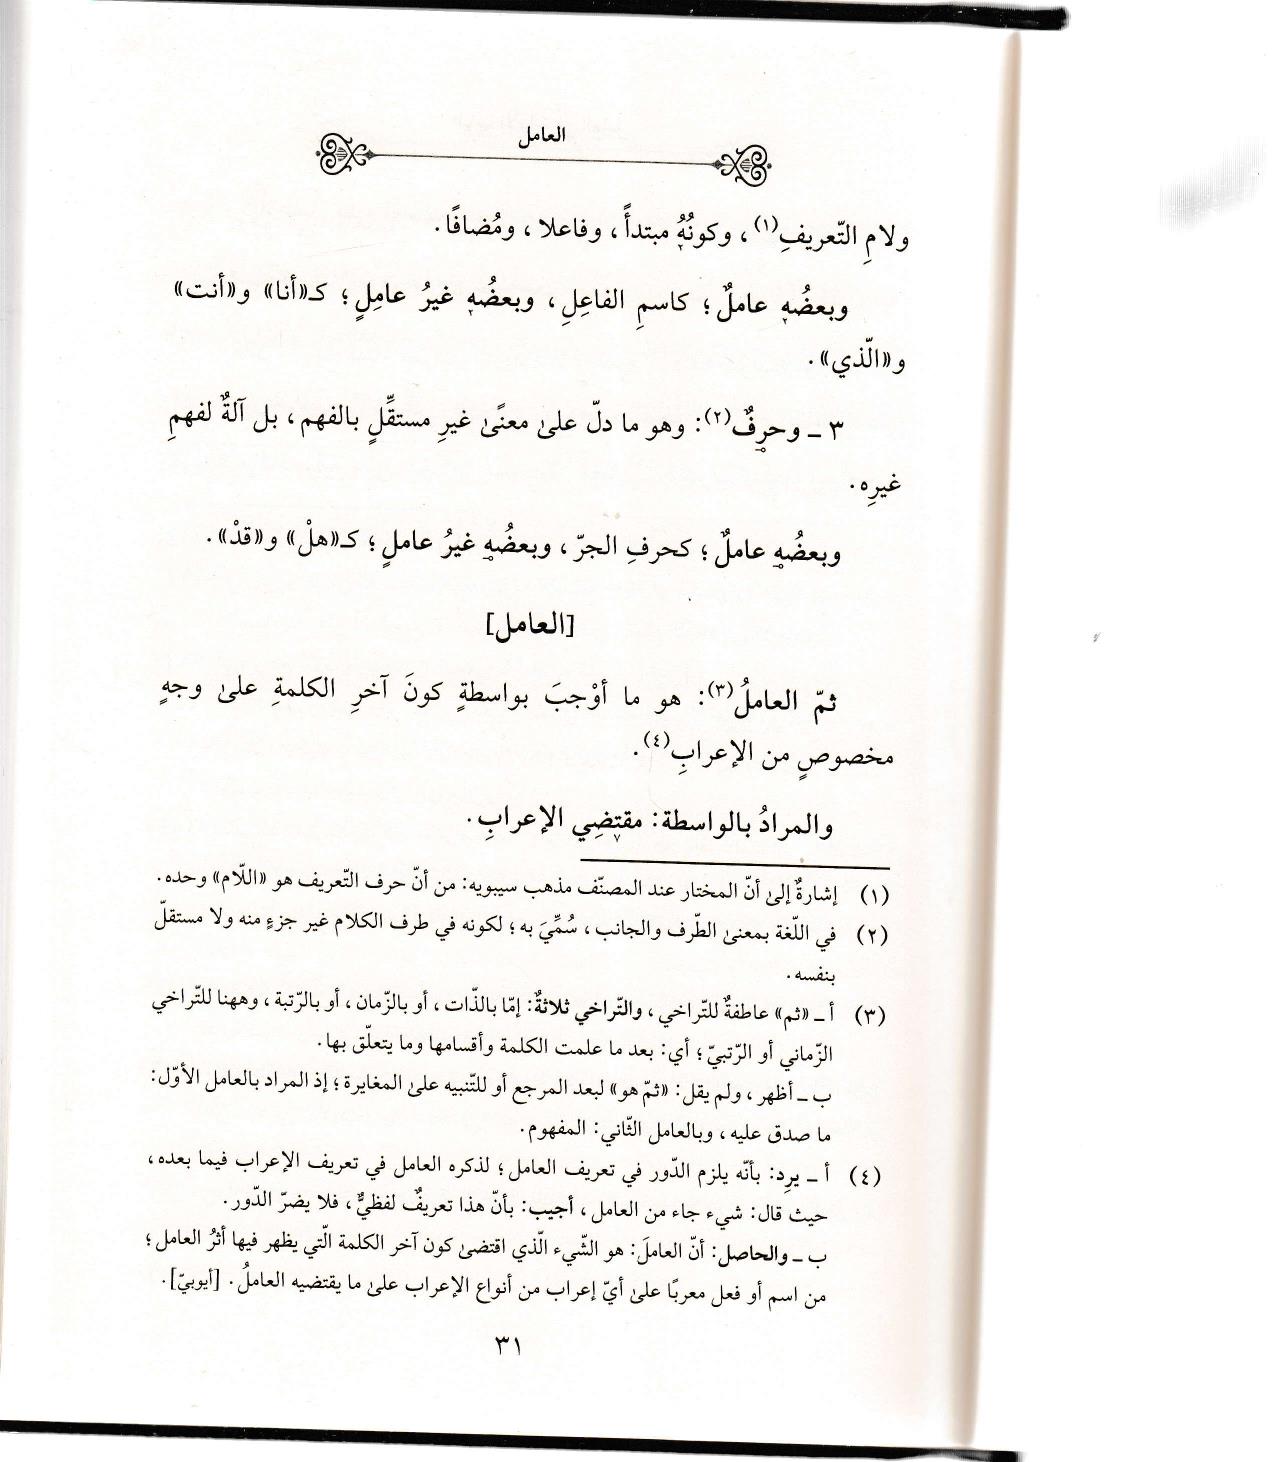 العامل
ولامِ التّعريفِ(١)، وكونُهُ مبتدأً، وفاعلا، ومُضافًا.
وبعضُهٖ عاملٌ؛ كاسمِ الفاعِلِ، وبعضُهٖ غيرُ عامِلٍ؛ كـ«أنا» و«أنت»
و«الّذي».
٣ ـ وحرفٌ(٢): وهو ما دلّ علىٰ معنًىٰ غيرِ مستقِّلٍ بالفهم، بل آلةٌ لفهمِ
غيرِه.
وبعضُهٖ عاملٌ؛ كحرفِ الجرّ، وبعضُهٖ غيرُ عاملٍ؛ كـ«هلْ» و«قدْ».
[العامل]
ثمّ العاملُ(٣): هو ما أوْجبَ بواسطةٍ كونَ آخرِ الكلمةِ علىٰ وجهٍ
مخصوصٍ من الإعرابِ(٤).
والمرادُ بالواسطة: مقتضِي الإعرابِ.
(١) إشارةٌ إلىٰ أنّ المختار عند المصنّف مذهب سيبويه: من أنّ حرف التّعريف هو «اللّام» وحده.
(٢) في اللّغة بمعنىٰ الطّرف والجانب، سُمِّيَ به؛ لكونه في طرف الكلام غير جزءٍ منه ولا مستقلّ
بنفسه.
(٣) أ ـ «ثم» عاطفةٌ للتّراخي، والتّراخي ثلاثةٌ: إمّا بالذّات، أو بالزّمان، أو بالرّتبة، وههنا للتّراخي
الزّماني أو الرّتبيّ؛ أي: بعد ما علمت الكلمة وأقسامها وما يتعلّق بها.
ب ـ أظهر، ولم يقل: «ثمّ هو» لبعد المرجع أو للتّنبيه علىٰ المغايرة؛ إذ المراد بالعامل الأوّل:
ما صدق عليه، وبالعامل الثّاني: المفهوم.
(٤) أ ـ يرِد: بأنّه يلزم الدّور في تعريف العامل؛ لذكره العامل في تعريف الإعراب فيما بعده،
حيث قال: شيء جاء من العامل، أجيب: بأنّ هذا تعريفٌ لفظيٌّ، فلا يضرّ الدّور.
ب ـ والحاصل: أنّ العاملَ: هو الشّيء الّذي اقتضىٰ كون آخر الكلمة الّتي يظهر فيها أثرُ العامل؛
من اسم أو فعل معربًا علىٰ أيّ إعراب من أنواع الإعراب علىٰ ما يقتضيه العاملُ. [أيوبيّ].
٣١